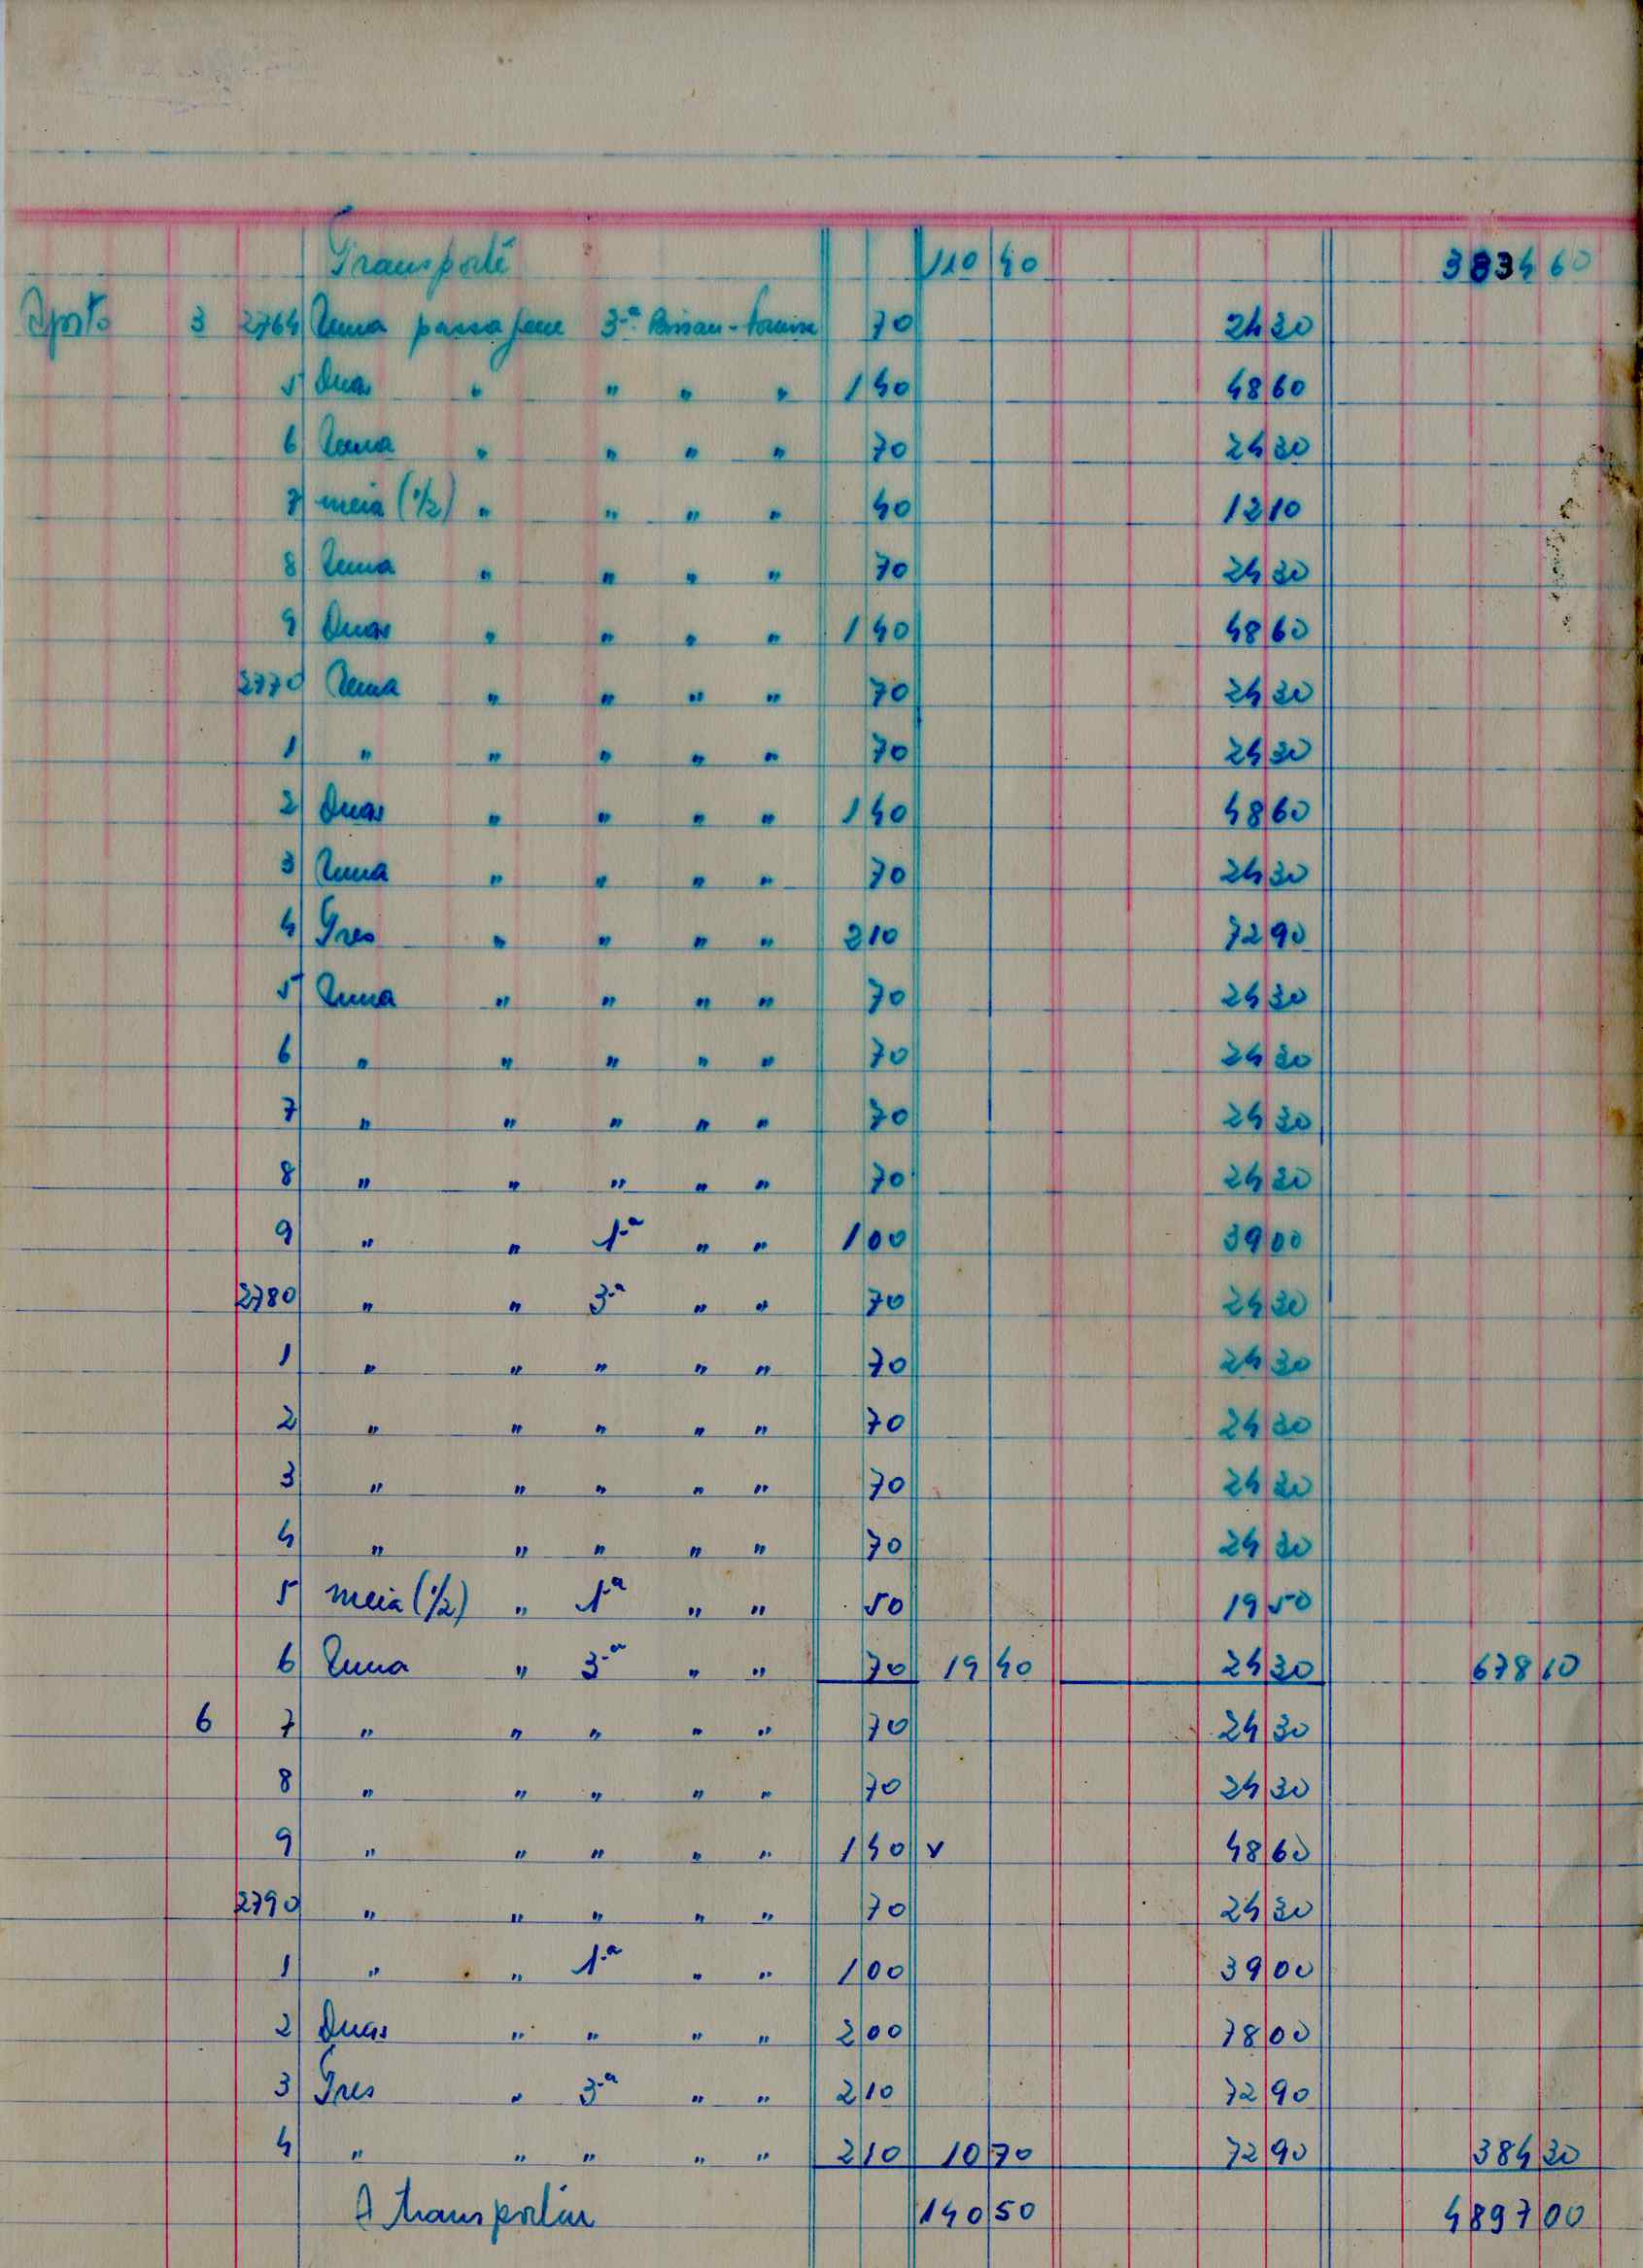 Transporte 110 40 3834 60
Agosto 3 2764 Uma passagem 3ª Bissau- 70 24 30
5 Duas " " " " 1 40 48 60
6 Uma " " " " 70 24 30
7 meia (1/2) " " " " 40 12 10
8 Uma " " " " 70 24 30
9 Duas " " " " 1 40 48 60
2770 Uma " " " " 70 24 30
1 " " " " " 70 24 30
2 Duas " " " " 1 40 48 60
3 Uma " " " " 70 24 30
4 Tres " " " " 2 10 72 90
5 Uma " " " " 70 24 30
6 " " " " " 70 24 30
7 " " " " " 70 24 30
8 " " " " " 70 24 30
9 " " 1ª " " 1 00 39 00
2780 " " 3ª " " 70 24 30
1 " " " " " 70 24 30
2 " " " " " 70 24 30
3 " " " " " 70 24 30
4 " " " " " 70 24 30
5 meia (1/2) " 1ª " " 50 19 50
6 Uma " 3ª " " 70 19 40 24 30 678 10
6 7 " " " " " 70 24 30
8 " " " " " 70 24 30
9 " " " " " 1 40 v 48 60
2790 " " " " " 70 24 30
1 " " 1ª " " 1 00 39 00
2 Duas " " " " 2 00 78 00
3 Tres " 3ª " " 2 10 72 90
4 " " " " " 2 10 10 70 72 90 384 30
A transportar 140 50 4897 00